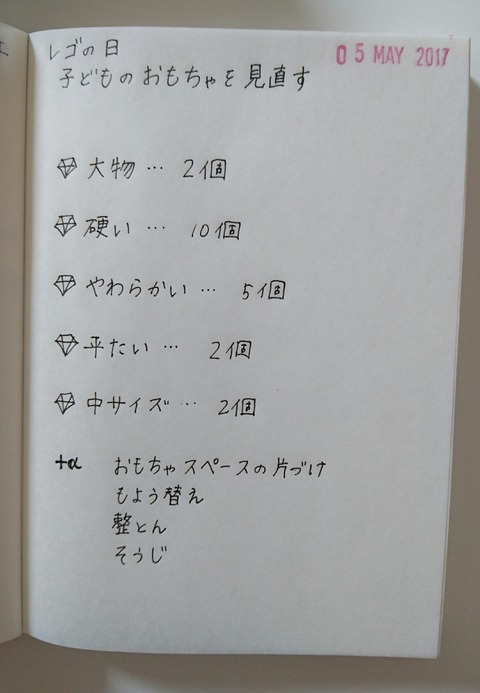 レゴの日
05 MAY 2017
子どものおもちゃを見直す
大物… 2個
硬い… 10個
やわらかい… 5個
平たい… 2個
中サイズ… 2個
+α おもちゃスペースの片づけ
もよう替え
整とん
そうじ